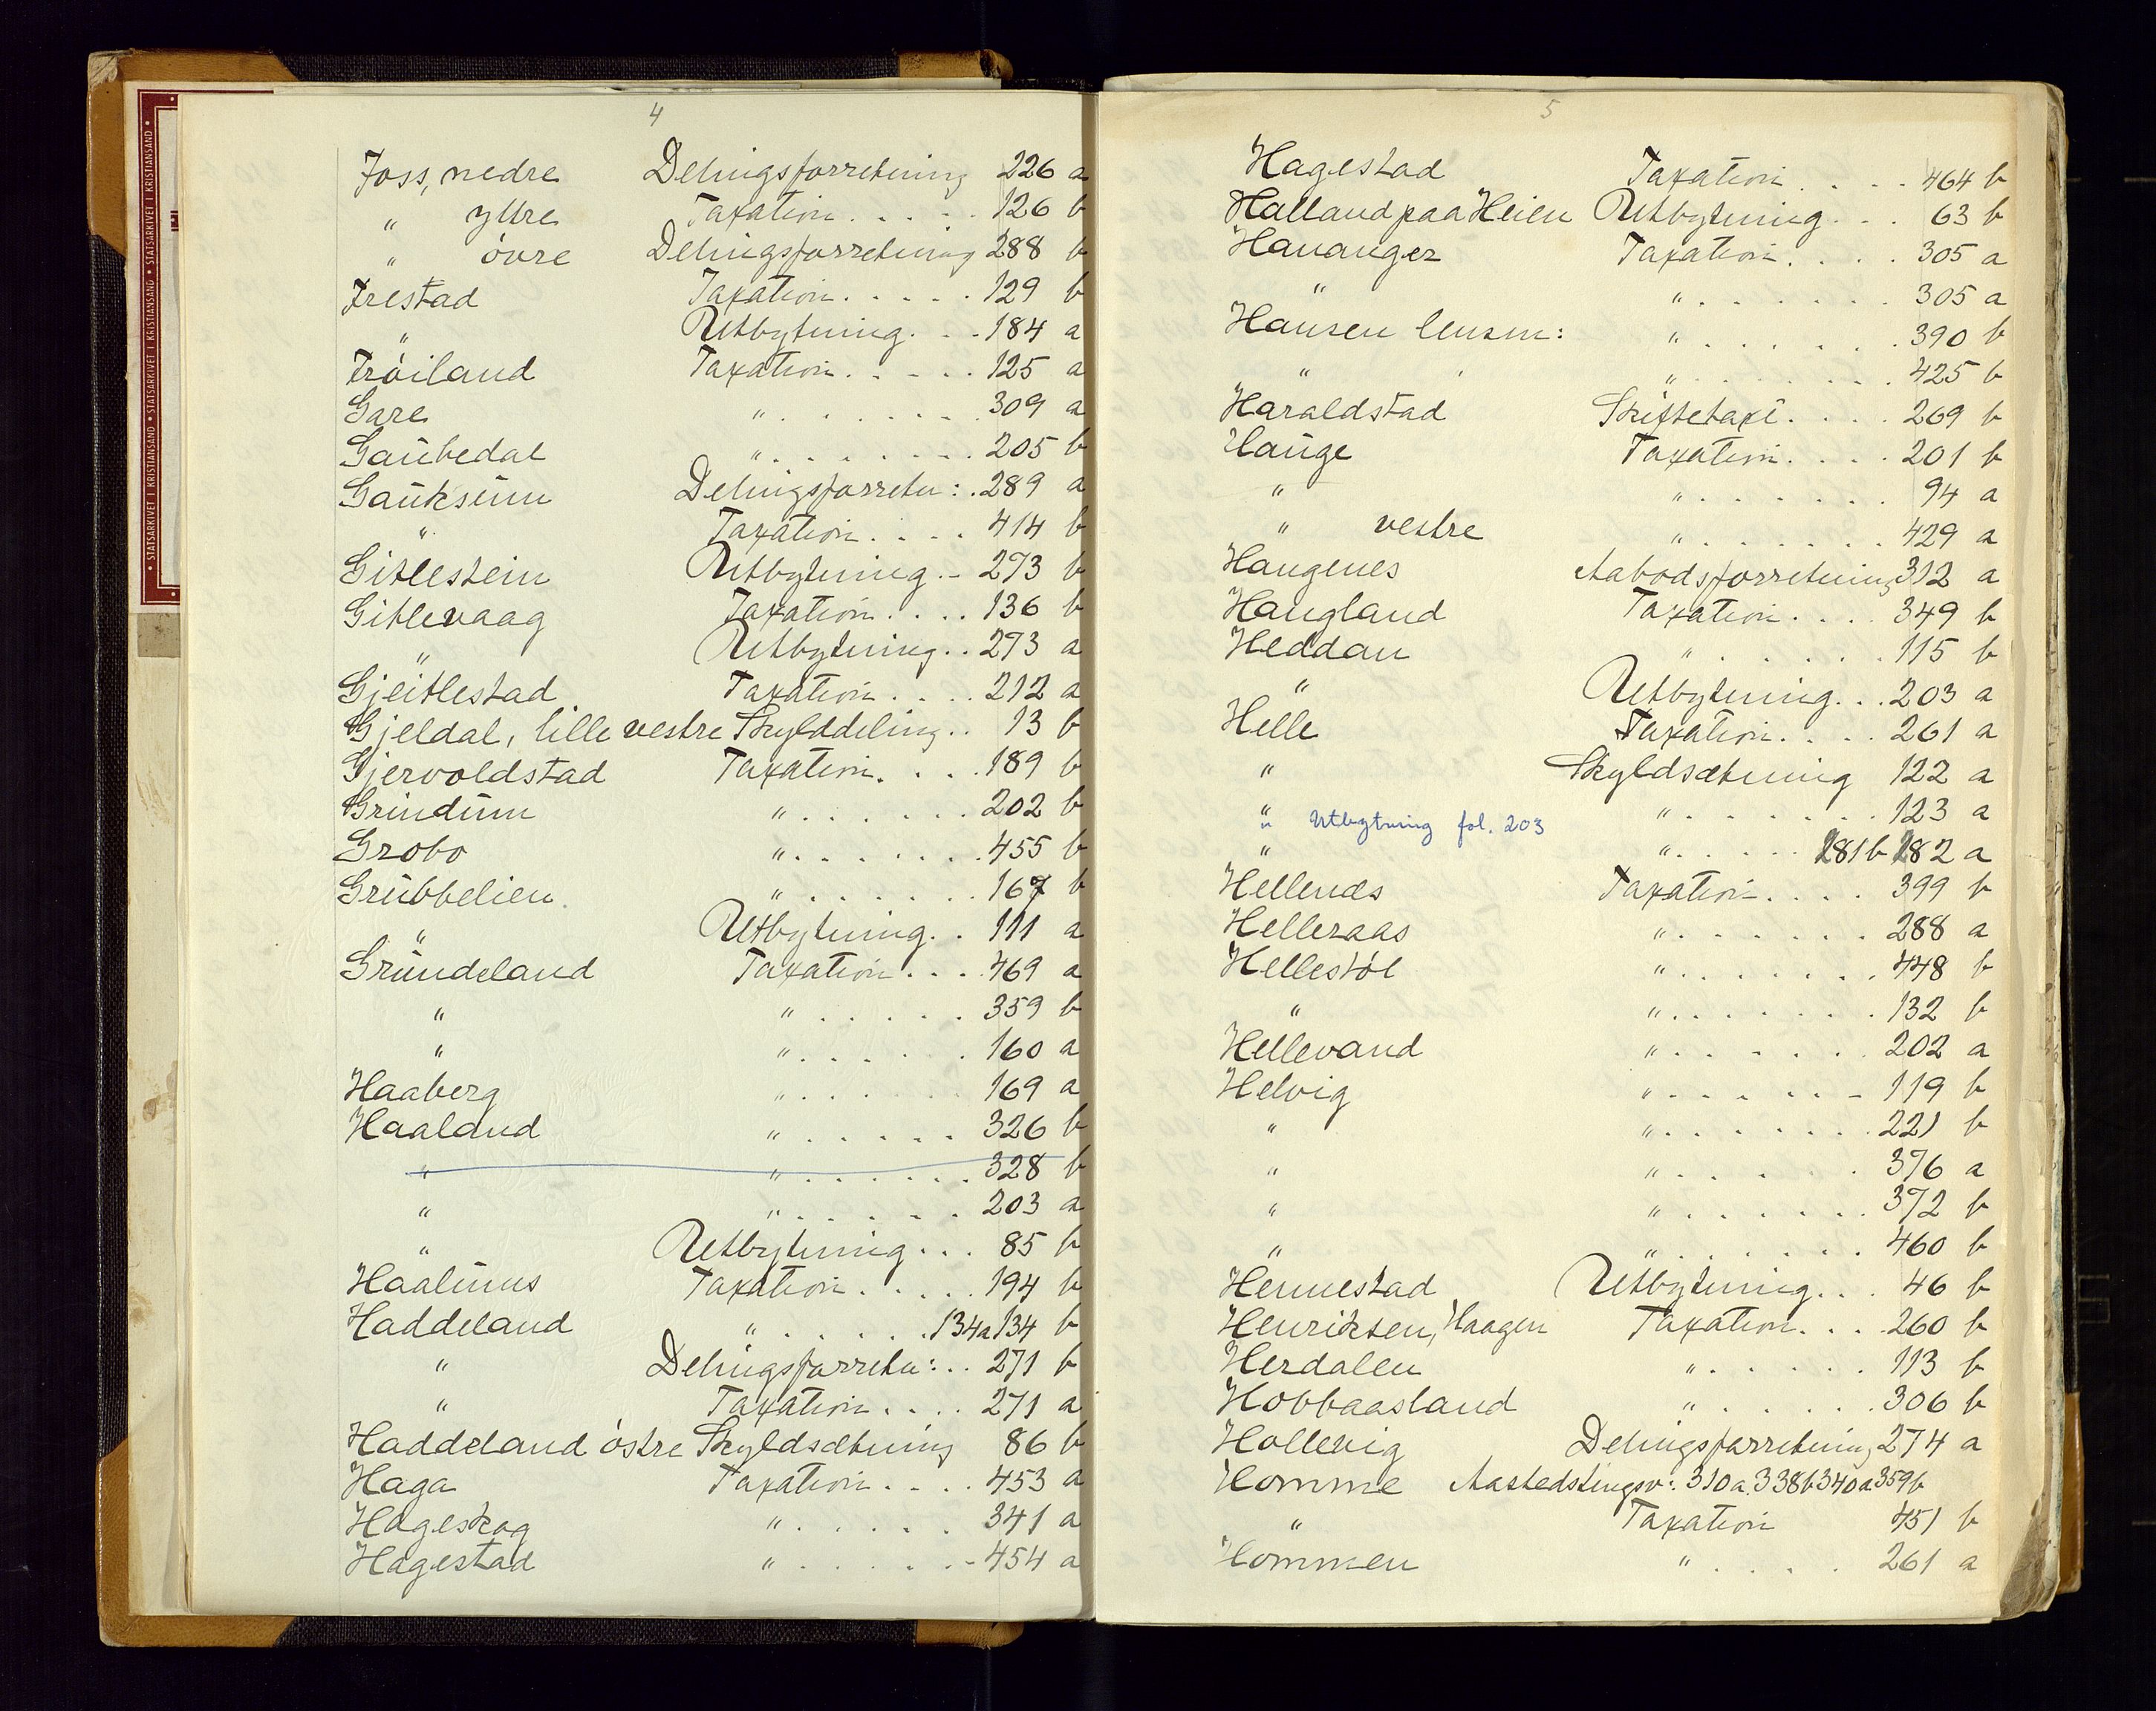 4
Foss, nedre Delingsforretning 226 a
" yttre Taxation..... 126 b
" övre Delingsforretning 288 b
Frestad Taxation..... 129 b
" Utbytning... 184 a
Fröiland Taxation..... 125 a
Gare "....... 309 a
Gaubedal "....... 205 b
Gauksum Delingsforretn:. 289 a
" Taxation.... 414 b
Gitlestein Utbytning.. 273 b
Gitlevaag Taxation.... 136 b
" Utbytning.. 273 a
Gjeitlestad Taxation.... 212 a
Gjeldal, lille vestre Skylddeling.. 13 b
Gjervoldstad Taxation.... 189 b
Grindum "...... 202 b
Grobo "....... 455 b
Grubbelien. "....... 167 b
" Utbytning.. 111 a
Grundeland Taxation.... 469 a
" "..... 359 b
" "...... 160 a
Haaberg "...... 169 a
Haaland "...... 326 b
" "....... 328 b
" "...... 203 a
" Utbytning... 85 b
Haalmus Taxation..... 194 b
Haddeland "...... 134a 134 b
" Delingsforretn:.. 271 b
" Taxation.... 271 a
Haddeland östre Skyldsætning 86 b
Haga Taxation.... 453 a
Hageskog "...... 341 a
Hagestad "...... 454 a
5
Hagestad Taxation.... 464 b
Halland paa Heien Utbytning... 63 b
Hananger Taxation.... 305 a
" "....... 305 a
Hansen lensm: "....... 390 b
" "....... 425 b
Haraldstad Skiftetaxt.... 269 b
Hauge Taxation.... 201 b
" "...... 94 a
" vestre "....... 429 a
Haugenes Aabodsforretning 312 a
Haugland Taxation.... 349 b
Heddan "...... 115 b
" Utbytning... 203 a
Helle Taxation.... 261 a
" Skyldsætning 122 a
" "....... 123 a
" Utbytning fol. 203
" "..... 281 b 282 a
Hellenes Taxation.... 399 b
Helleraas "...... 288 a
Hellestöl "....... 448 b
" "....... 132 b
Hellevand "...... 202 a
Helvig "...... 119 b
" "....... 221 b
" "...... 376 a
" "...... 372 b
" "...... 460 b
Hennestad Utbytning... 46 b
Henriksen, Haagen Taxation.... 260 b
Herdalen "...... 113 b
Hobbaasland "...... 306 b
Hollevig Delingsforretning 274 a
Homme Aastedstingsv:. 310a. 338b 340a 359b
" Taxation 451 b
Hommen ".... 261 a
STATSARKIVET I KRISTIANSAND • STATSARKIVET I KRISTIANSAND • STATSARKIVET I KRISTIANSAND